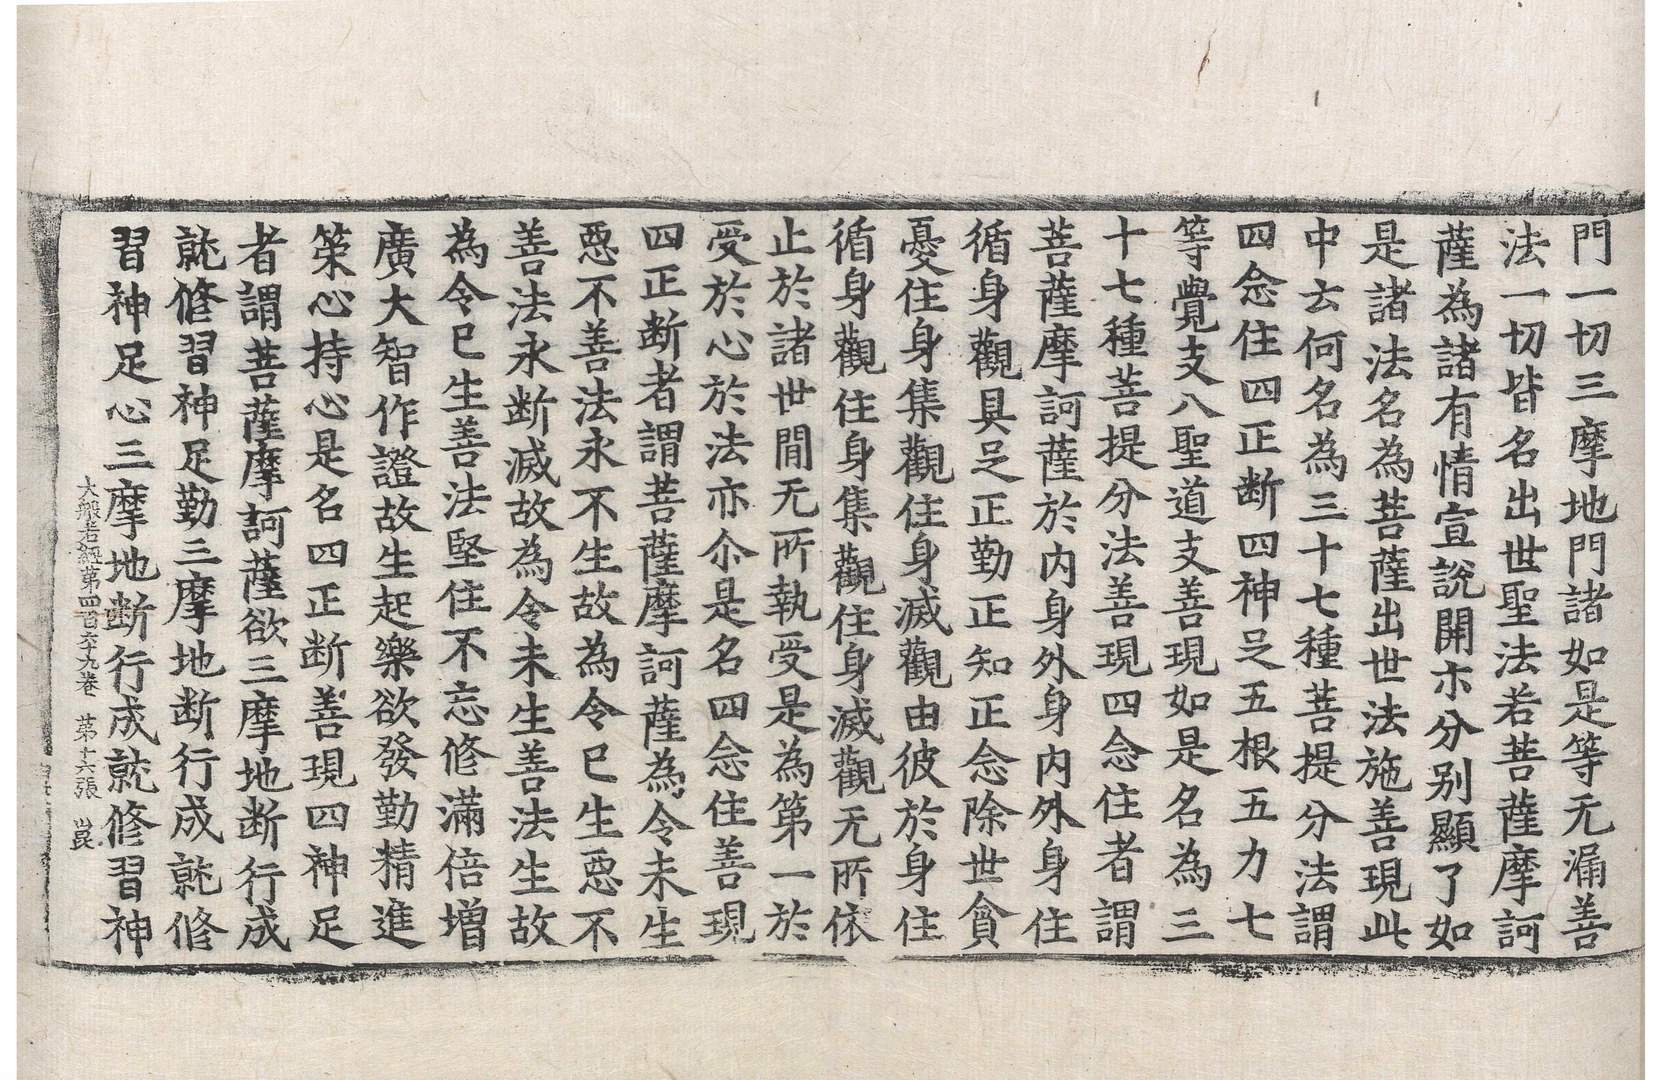 門一切三摩地門諸如是等无漏善
法一切皆名出世聖法若菩薩摩訶
薩為諸有情宣說開示分別顯了如
是諸法名為菩薩出世法施善現此
中云何名為三十七種菩提分法謂
四念住四正断四神足五根五力七
等覺支八聖道支善現如是名為三
十七種菩提分法善現四念住者謂
菩薩摩訶薩於内身外身内外身住
循身觀具足正勤正知正念除世貪
憂住身集觀住身滅觀由彼於身住
循身觀住身集觀住身滅觀无所依
止於諸世間无所執受是為第一於
受於心於法亦尒是名四念住善現
四正断者謂菩薩摩訶薩為令未生
惡不善法永不生故為令已生惡不
善法永断滅故為令未生善法生故
為令已生善法堅住不忘修滿倍增
廣大智作證故生起樂欲發勤精進
策心持心是名四正断善現四神足
者謂菩薩摩訶薩欲三摩地断行成
就修習神足勤三摩地断行成就修
習神足心三摩地断行成就修習神
大般若經第四百六十九卷 第十六張 崑